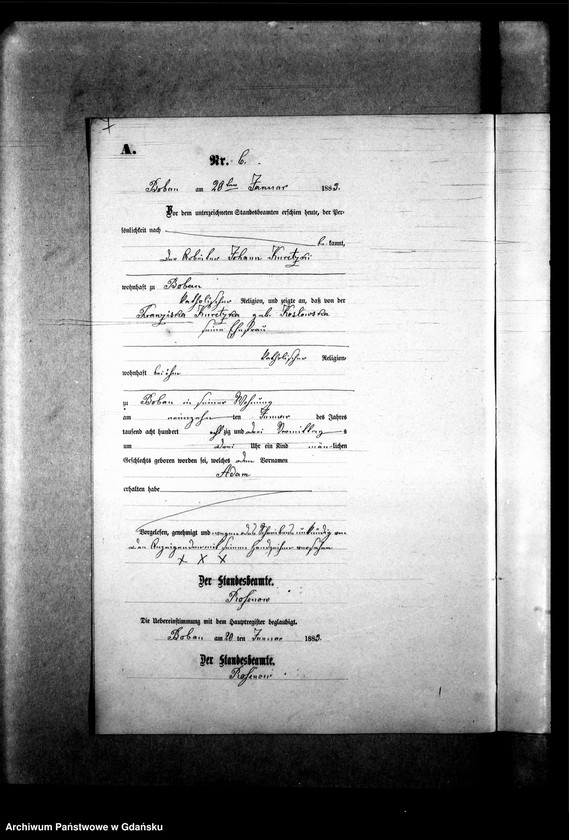 A.
Nr. 6.
Bobau am 20ten Januar 1883.
Vor dem unterzeichneten Standesbeamten erschien heute, der Per-
sönlichkeit nach
be kannt,
der Arbeiter Johann
wohnhaft zu Bobau
katholischer Religion, und zeigte an, daß von der
Franziska geb. Koslowska
seine Ehefrau
katholischer Religion
wohnhaft bei ihm
zu Bobau in seiner Wohnung
am neunzehn ten Januar des Jahres
tausend acht hundert acht zig und drei Vormittag s
um drei Uhr ein Kind männ-lichen
Geschlechts geboren worden sei, welches den Vornamen
Adam
erhalten habe
Vorgelesen, genehmigt und wegen des Schreibens unkundig von
dem Anzeigenden mit seinem Handzeichen versehen
x x x
Der Standesbeamte.
Rosenow
Die Uebereinstimmung mit dem Hauptregister beglaubigt.
Bobau am 20 ten Januar 1883.
Der Standesbeamte.
Rosenow
Archiwum Państwowe w Gdańsku